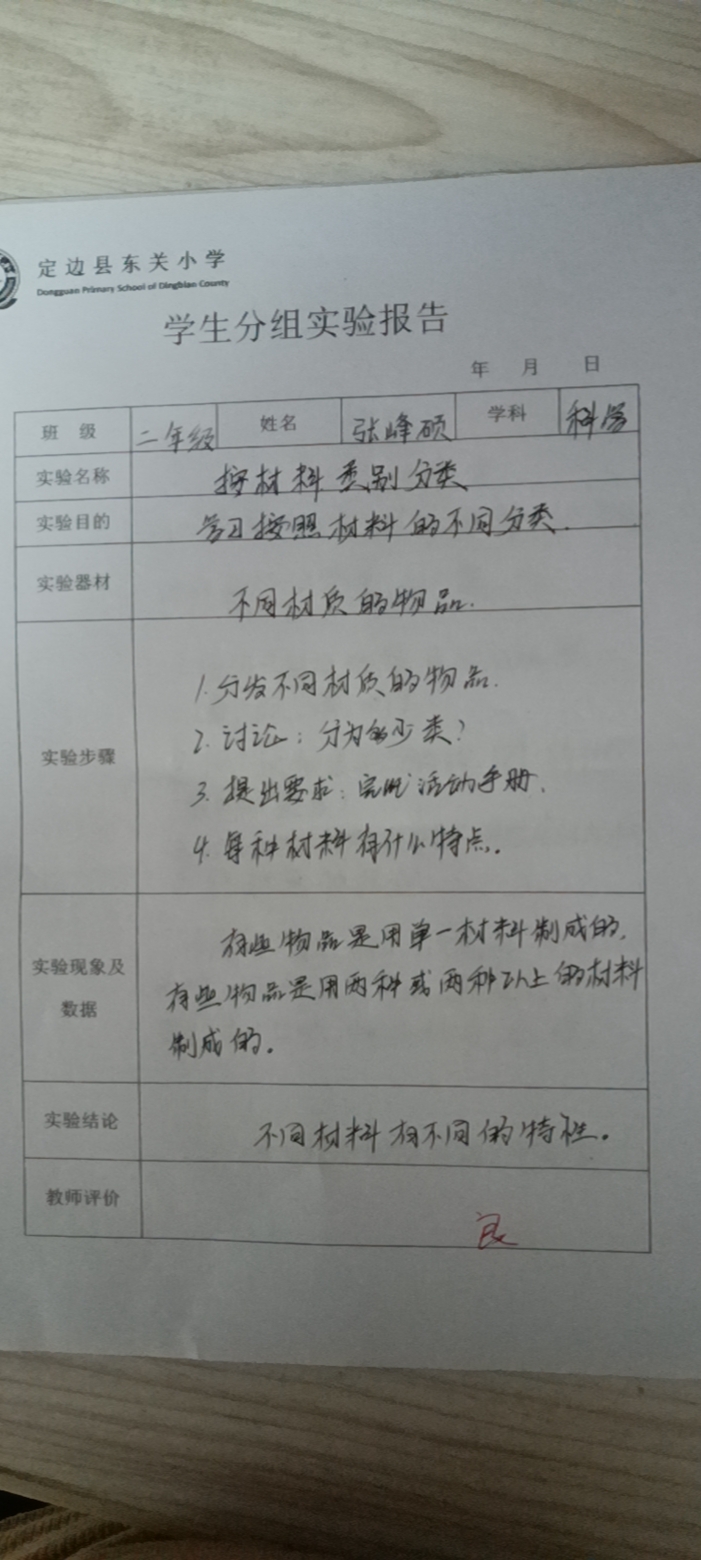 定边县东关小学
Dongguan Primary School of Dingbian County
学生分组实验报告
年 月 日
班 级 二年级 姓名 张峰硕 学科 科学
实验名称 按材料类别分类
实验目的 学习按照材料的不同分类.
实验器材 不同材质的物品.
实验步骤
1. 分发不同材质的物品.
2. 讨论: 分为多少类?
3. 提出要求: 完成活动手册.
4. 每种材料有什么特点.
实验现象及
数据
有些物品是用单一材料制成的,
有些物品是用两种或两种以上的材料
制成的。
实验结论 不同材料有不同的特性。
教师评价 良